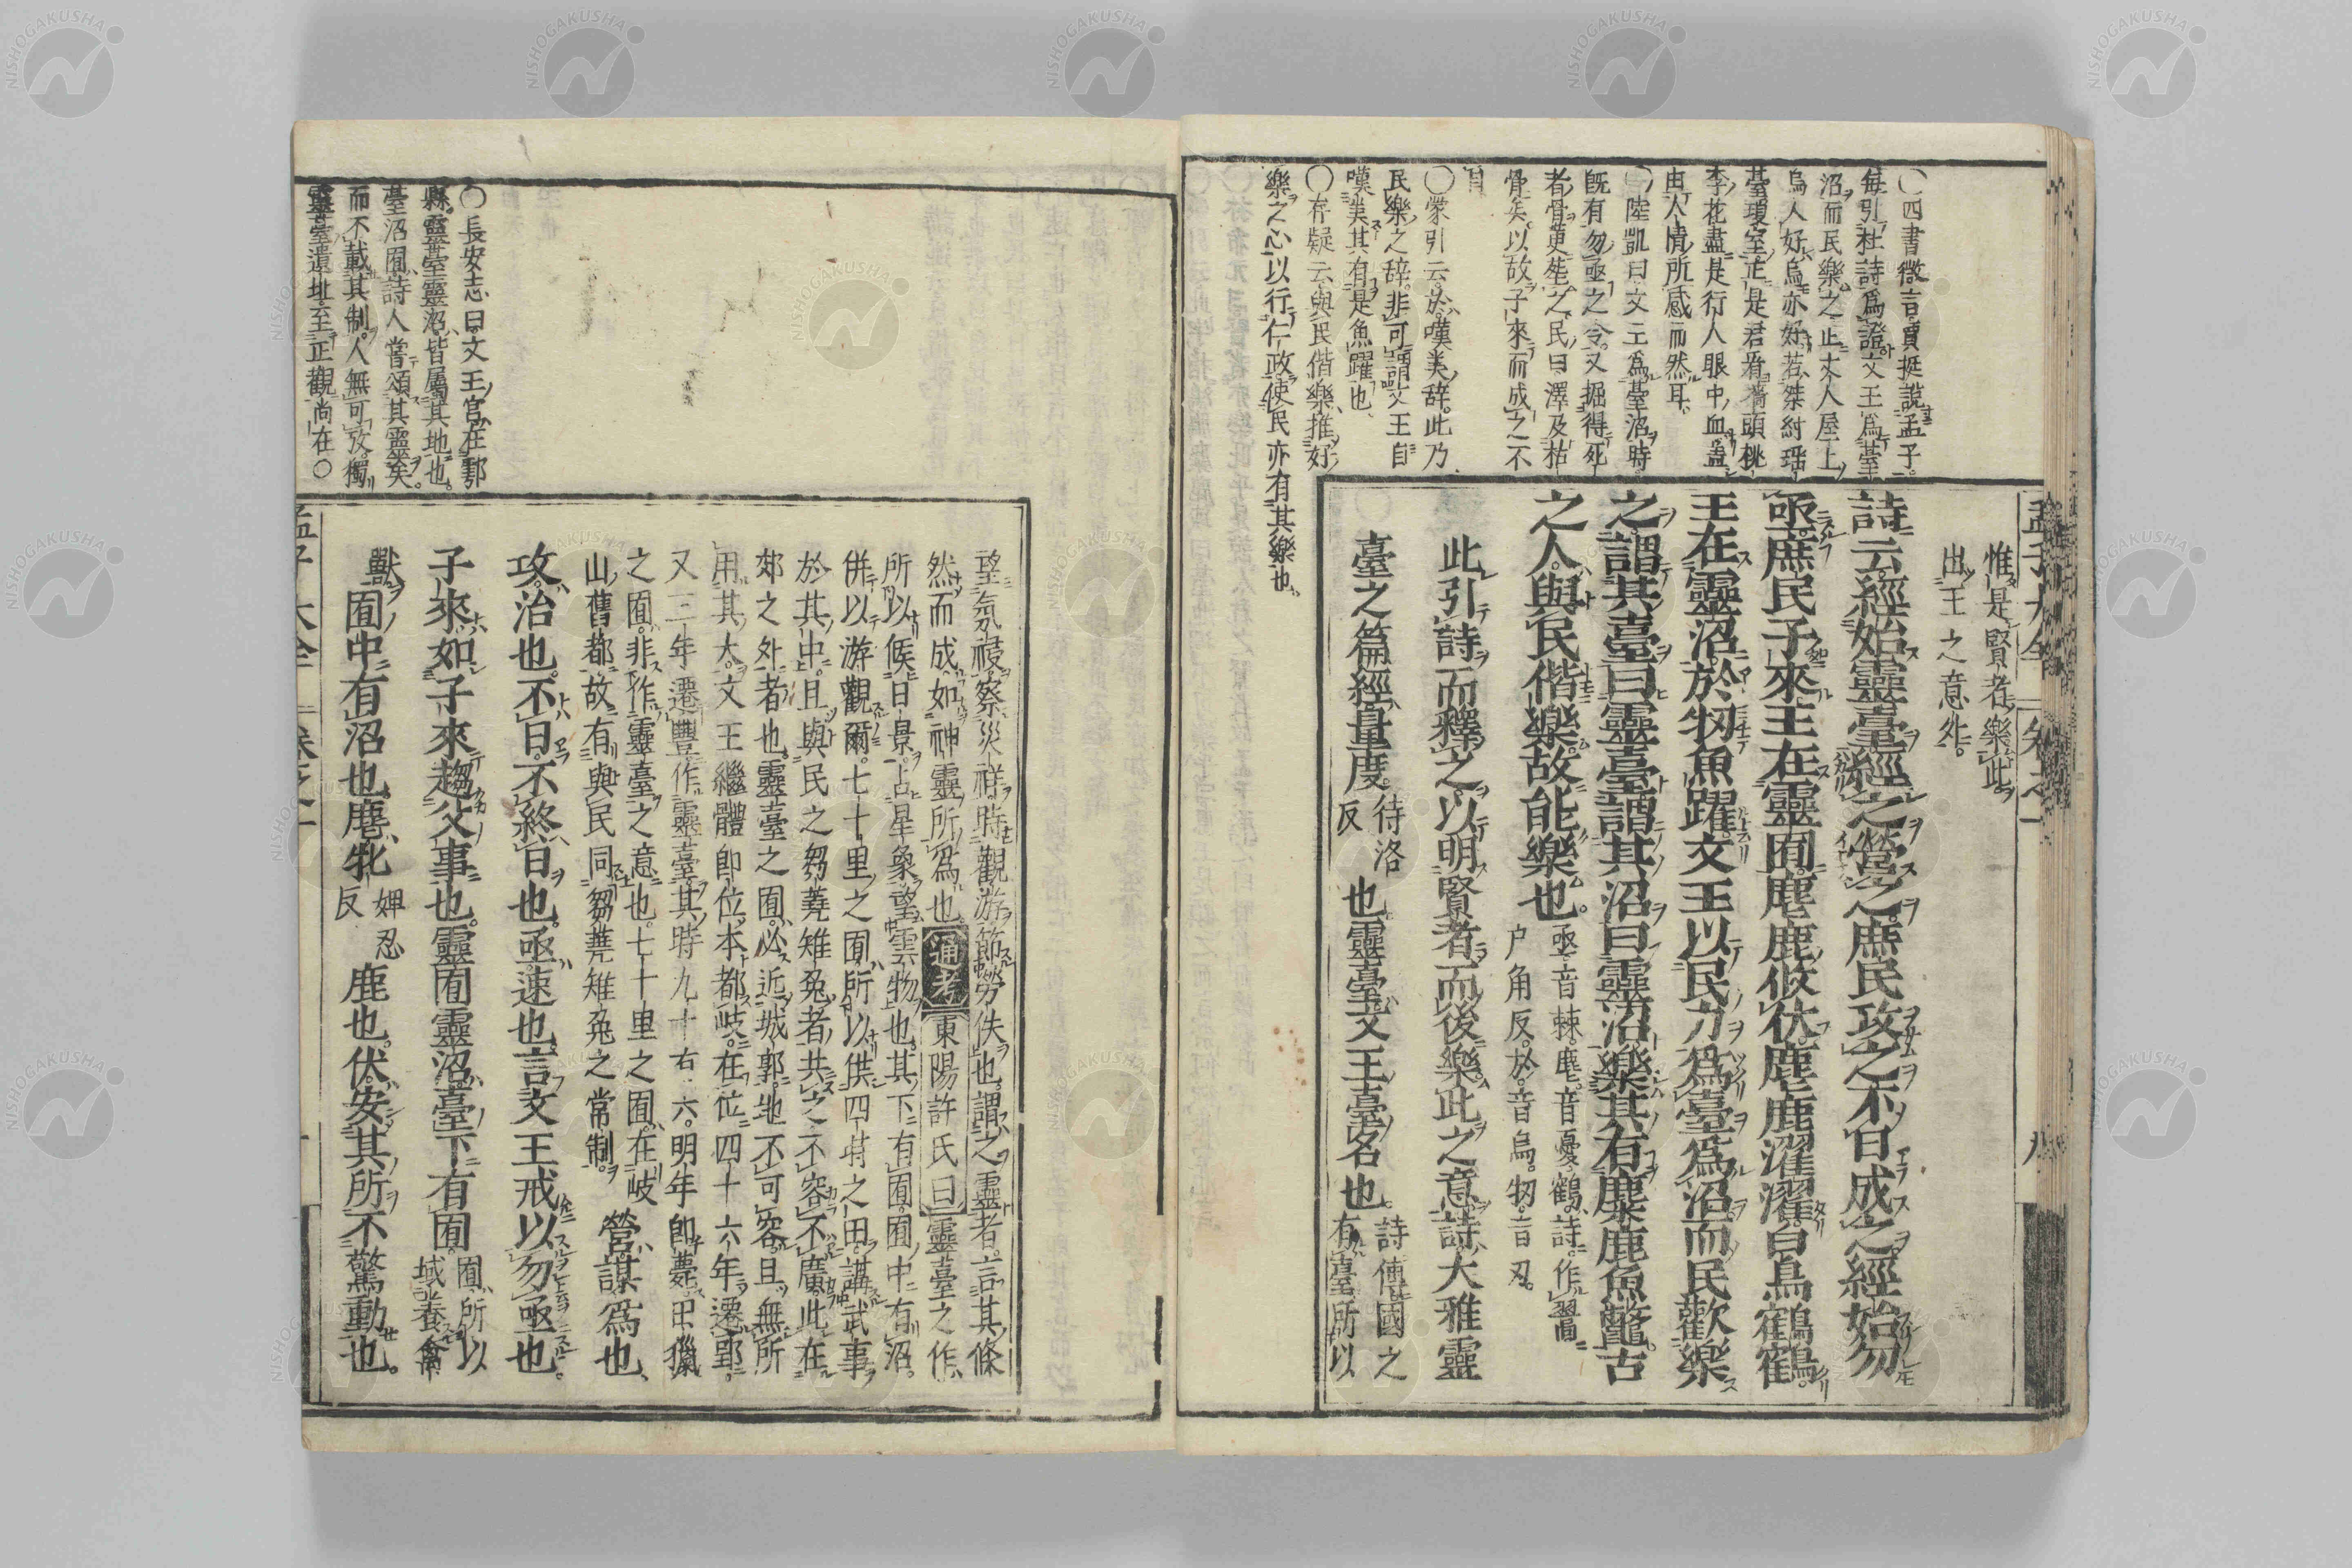 惟是賢者樂此
出王之意外
詩云經始靈臺經之營之庶民攻之不日成之經始勿
亟庶民子來王在靈囿麀鹿攸伏麀鹿濯濯白鳥鶴鶴
王在靈沼於牣魚躍文王以民力爲臺爲沼而民歡樂
之謂其臺曰靈臺謂其沼曰靈沼樂其有麋鹿魚鼈古
之人與民偕樂故能樂也
亟音棘麀音憂鶴詩作翯
户角反於音烏牣音刃
此引詩而釋之以明賢者而後樂此之意詩大雅靈
臺之篇經量度
待洛
反
也靈臺文王臺名也
詩傳國之
有臺所以
〇四書微言賈挺説孟子
毎引杜詩爲證文王爲臺
沼而民樂之止丈人屋上
烏人好烏亦好若桀紂瑶
臺瓊室正是君看墻頭桃
李花盡是行人眼中血蓋
由人情所感而然耳
〇陸凱曰文王爲臺沼時
既有勿亟之令又掘得死
者骨更塟之民曰澤及枯
骨矣以故子來而成之不
日
〇蒙引云於嘆美辞此乃
民樂之辞非可謂文王自
嘆美其有是魚躍也
〇存疑云與民偕樂推好
樂之心以行仁政使民亦有其樂也
孟子大全
卷之一
八
望氛祲察災祥時觀游節勞佚也謂之靈者言其條
然而成如神靈所爲也通考東陽許氏曰靈臺之作
所以候日景占星象望雲物也其下有囿囿中有沼
併以游觀爾七十里之囿所以供四時之田講武事
於其中且與民之芻蕘雉兔者共之不容不廣此在
郊之外者也靈臺之囿必近城郭地不可容且無所
用其大文王繼體即位本都岐在位四十六年遷郢
又三年遷豐作靈臺其時九十有六明年即薨田獵
之囿非作靈臺之意也七十里之囿在岐
山舊都故有與民同芻蕘雉兔之常制
營謀爲也
攻治也不日不終日也亟速也言文王戒以勿亟也
子來如子來趨父事也靈囿靈沼臺下有囿
囿所以
域養禽
獸
囿中有沼也麀牝
婢忍
反
鹿也伏安其所不驚動也
〇長安志曰文王宫在鄠
縣靈臺靈沼皆屬其地也
臺沼囿詩人嘗頌其靈矣
而不載其制人無可攷獨
靈臺遺址至正觀尚在〇
孟子大全
卷之一